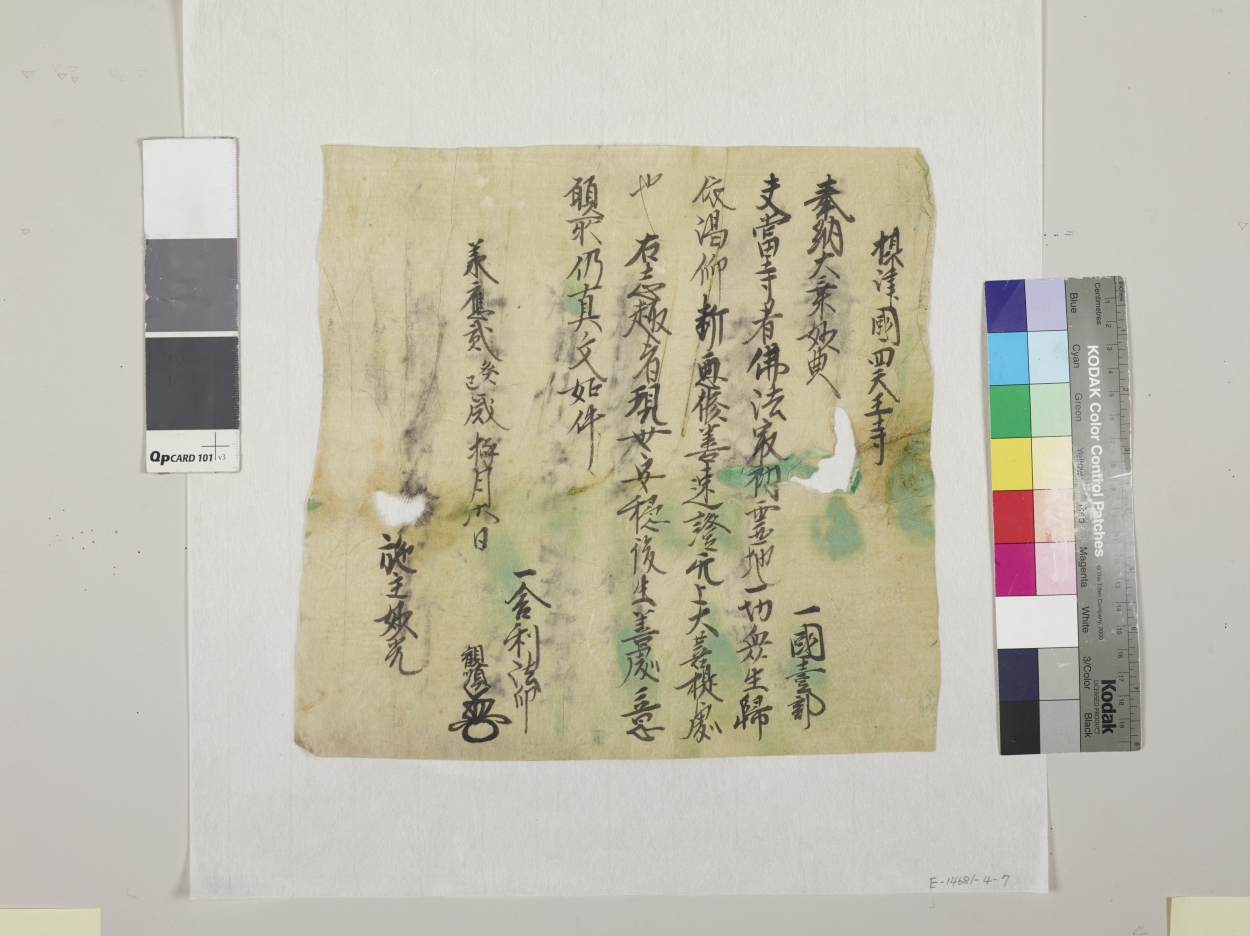 摂津國四天王寺
奉納大乗妙典
一國壹部
夫當寺者佛法㝡初霊地一切衆生歸
依渇仰新更修善速證无上大菩提處
也
右志趣者現世安穏後生善處乃至
願哀仍真文如件
承應貳癸巳歳極月十八日
一舎利法印
観順
施主妙亮
QPCARD 101 v3
KODAK Color Control Patches
© The Tiffen Company, 2000
Kodak
LICENSED PRODUCT
Centimetres
Inches
Blue
Cyan
Green
Yellow
Red
Magenta
White
3/Color
Black
E-14681-4-7